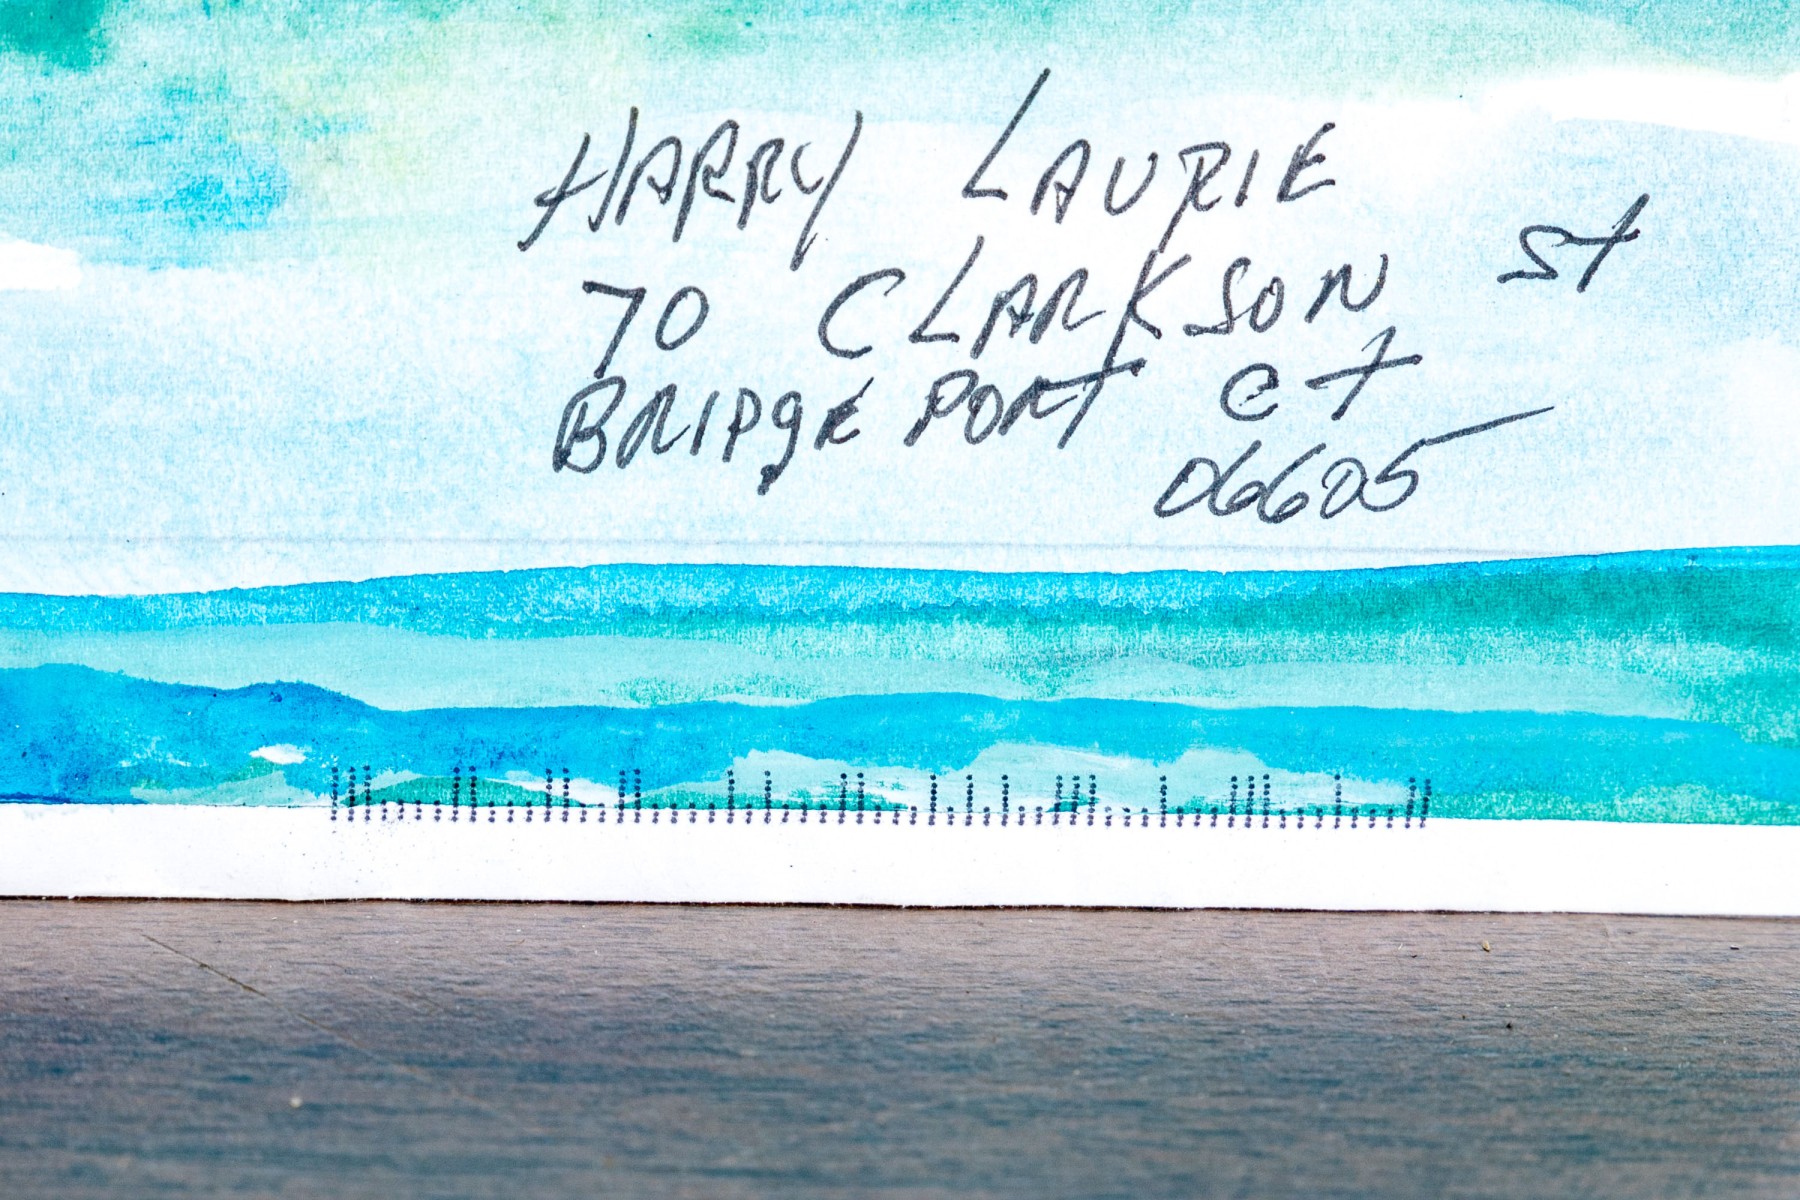 HARRY LAURIE
70 CLARKSON St
BRIDgEPORT Ct
06605